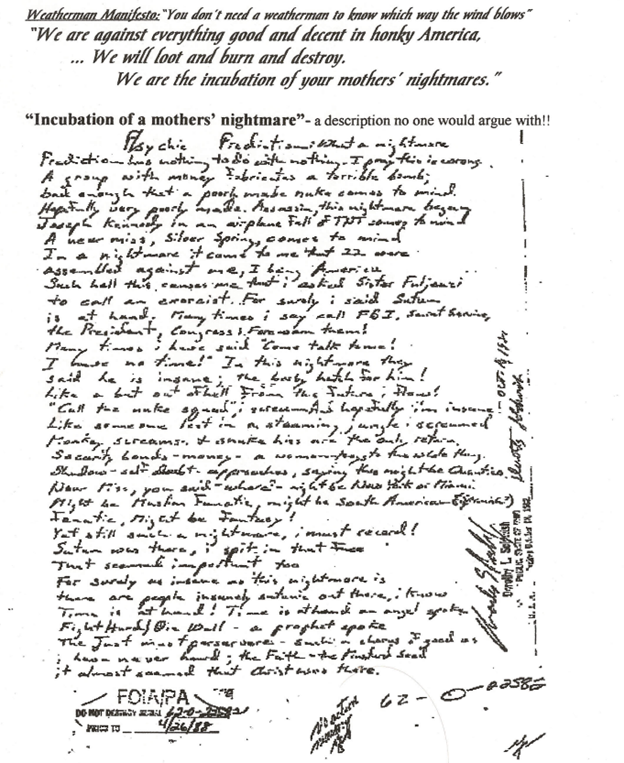 Weatherman Manifesto: "You don't need a weatherman to know which way the wind blows"
"We are against everything good and decent in honky America,
... We will loot and burn and destroy.
We are the incubation of your mothers' nightmares."
"Incubation of a mothers' nightmare"- a description no one would argue with!!
Psychic Prediction: What a nightmare
Prediction has nothing to do with nothing. I pray this is wrong.
A group with money fabricates a terrible bomb;
bad enough that a poorly made nuke comes to mind.
Hopefully very poorly made. Assassin, this nightmare began
Joseph Kennedy in an airplane full of TNT comes to mind
A near miss, Silver Spring, comes to mind
In a nightmare it came to me that 22 were
assembled against me, I being America
Such hell this causes me that i asked Sister
to call an exorcist. For surely i said Satan
is at hand. Many times i say call FBI, Secret Service,
the President, Congress. Forewarn them!
Many times i have said "Come talk to me!
I have no time!" In this nightmare they
said he is insane; the booby hatch for him!
Like a bat out of hell from the future i flow!
"Call the nuke squad", i screamed hopefully i'm insane
Like someone lost in a steaming jungle i screamed
Monkey screams & snake hiss are the only return.
Security bonds - money - a woman the whole thing.
Shadow - self doubt - approaches, saying this might be
Near Miss, you said - where - might be New York or Miami
Might be Muslim Fanatic, might be South American
Fanatic, Might be Fantasy!
Yet still such a nightmare, i must record!
Satan was there, i spit in that face
That seemed important too
For surely as insane as this nightmare is
there are people insanely satanic out there, i know
Time is at hand! Time is at hand an angel spoke
Fight Hard/Die Well - a prophet spoke
The Just must perservere - such a chorus i good as
i have never heard; the Faith - the Mustard Seed
it almost seemed that Christ was there.
Dorothy L.
FOIA/PA
DO NOT DESTROY SERIAL 62-0-
PRIOR TO 4/26/88
62-0-